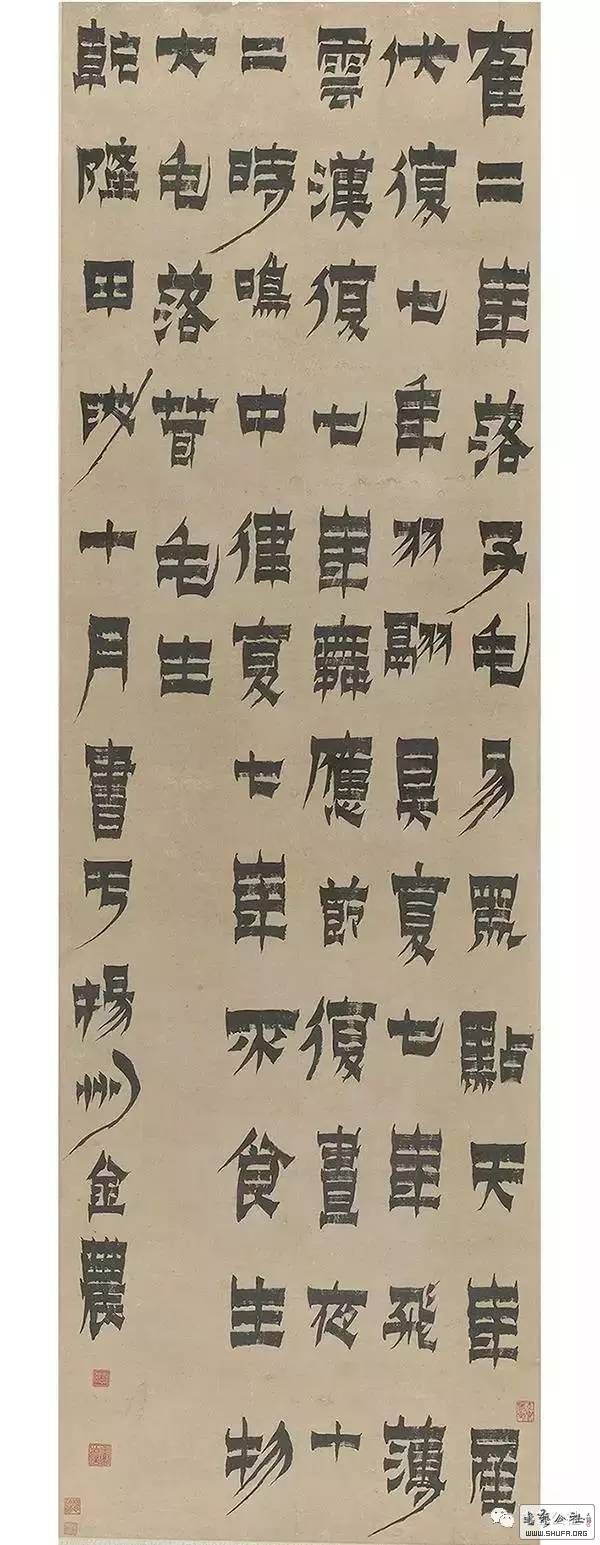 隺二年落子毛易黑點天年產
伏復七年羽翮具复七年飛薄
雲漢復七年舞應節復晝夜十
二時鳴中律复七年不食生物
大毛落茸毛生
乾隆甲戌十月書于楊州金農
书艺公社
WWW.SHUFA.ORG